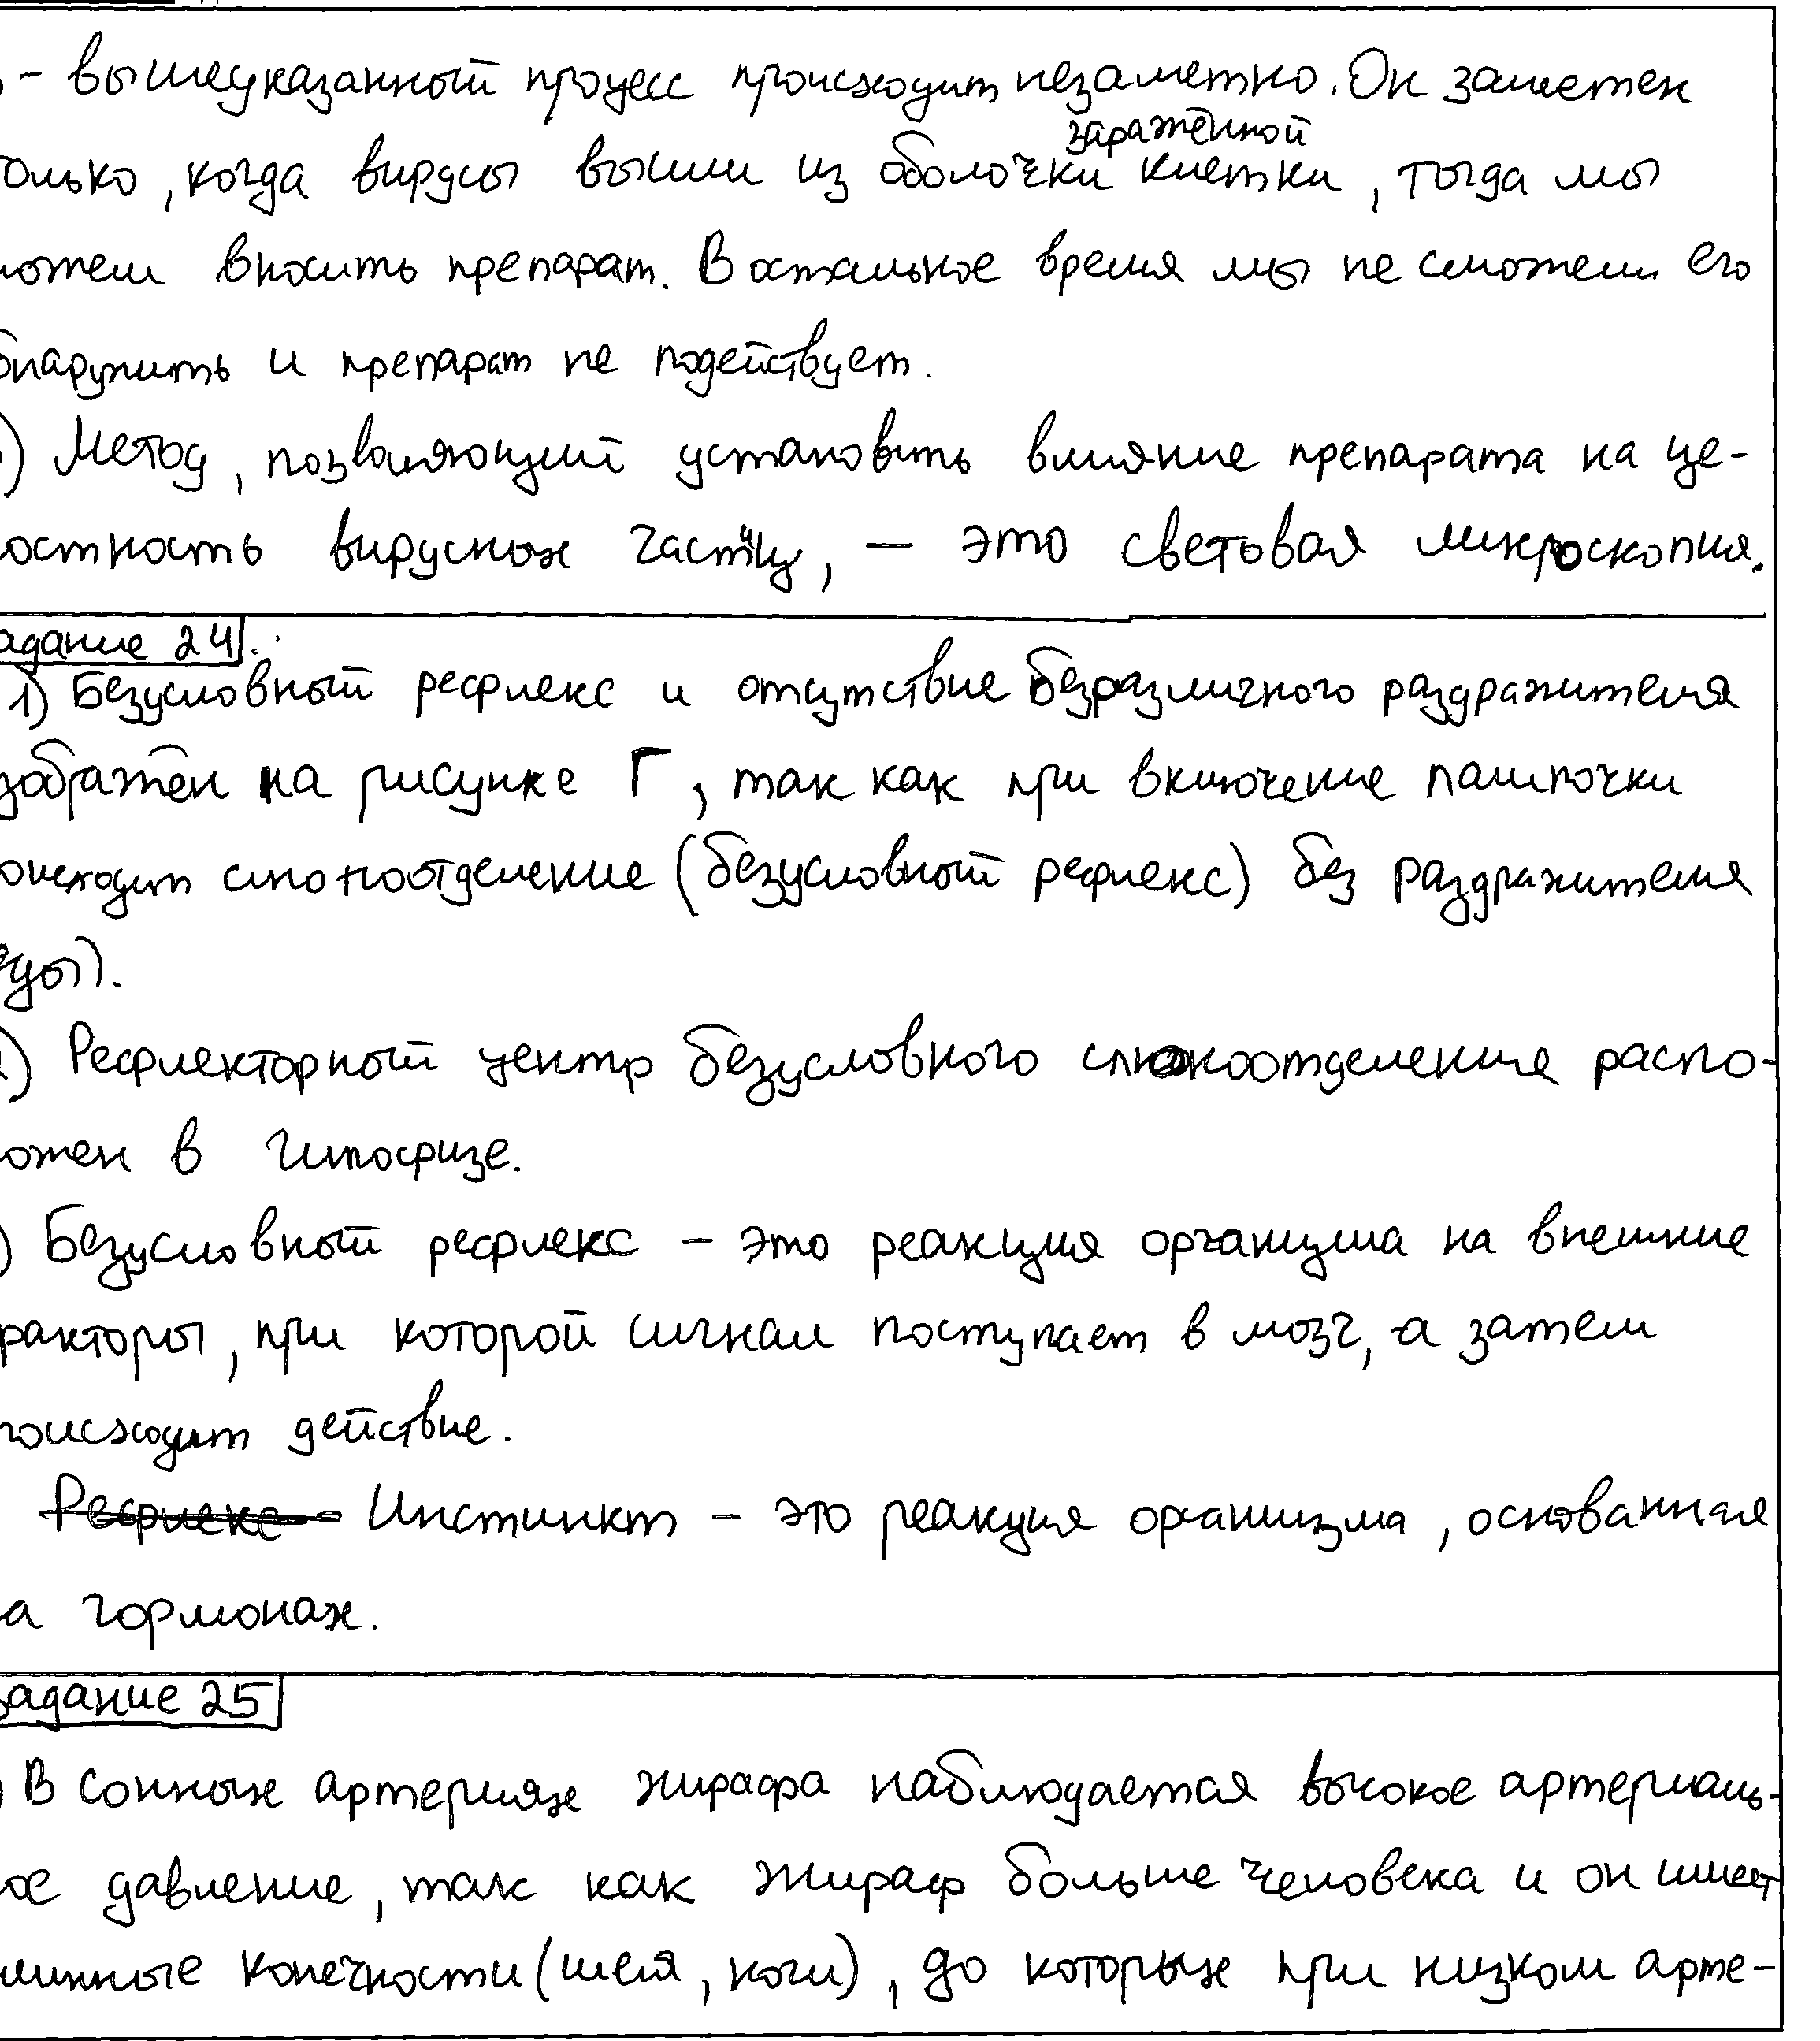 - вышеуказанный процесс происходит незаметно. Он заметен
только, когда вирусы вышли из оболочки заражённой клетки, тогда мы
можем вносить препарат. В остальное время мы не сможем его
обнаружить и препарат не подействует.
) Метод, позволяющий установить влияние препарата на це-
лостность вирусных частиц, — это световая микроскопия.
задание 24.
1) Безусловный рефлекс и отсутствие безразличного раздражителя
изображён на рисунке Г, так как при включение лампочки
происходит слюноотделение (безусловный рефлекс) без раздражителя
еды).
) Рефлекторный центр безусловного слюноотделения распо-
ложен в гипофизе.
) Безусловный рефлекс - это реакция организма на внешние
факторы, при которой сигнал поступает в мозг, а затем
происходит действие.
Рефлекс - Инстинкт - это реакция организма, основанная
на гормонах.
задание 25
) В сонных артериях жирафа наблюдается высокое артериаль-
ное давление, так как жираф больше человека и он имеет
длинные конечности (шея, ноги), до которых при низком арте-